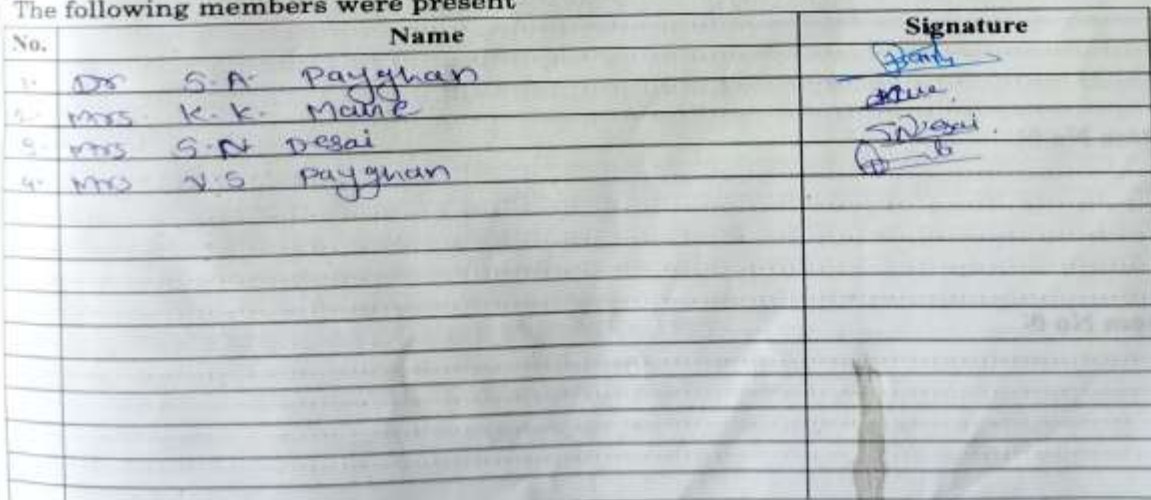 The following members were present
No. Name Signature
1. Dr S.A. Payghan
2. Mrs. K.K. Mane
3. Mrs S.N Desai SNDesai.
4. Mrs V.S Payghan